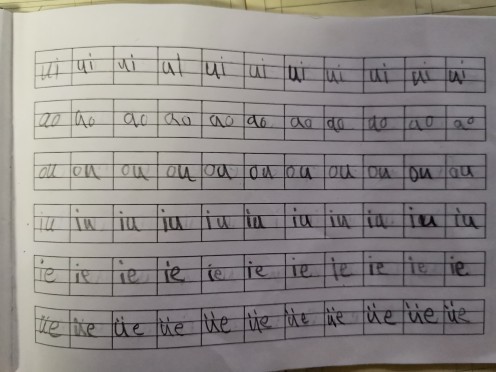 ui ui ui ui ui ui ui ui ui ui ui
ao ao ao ao ao ao ao ao ao ao ao
ou ou ou ou ou ou ou ou ou ou ou
iu iu iu iu iu iu iu iu iu iu iu
ie ie ie ie ie ie ie ie ie ie ie
üe üe üe üe üe üe üe üe üe üe üe